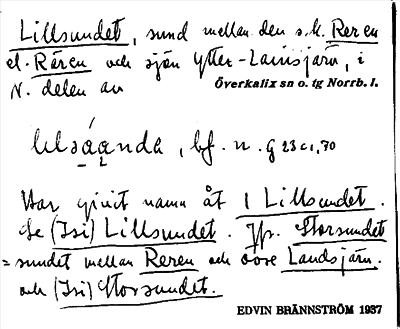 Lillsundet, sund mellan den s.k. Reren
el. Rären och sjön Ytter-Lansjärv, i
N. delen av Överkalix sn o. tg Norrb. l.
lılsáanda, bf. n. g 23 c1,70
Har givit namn åt 1 Lillsundet.
Se (Isi) Lillsundet. Jfr. Storsundet
= sundet mellan Reren och övre Landsjärv.
och (Isi) Storsundet.
EDVIN BRÄNNSTRÖM 1937